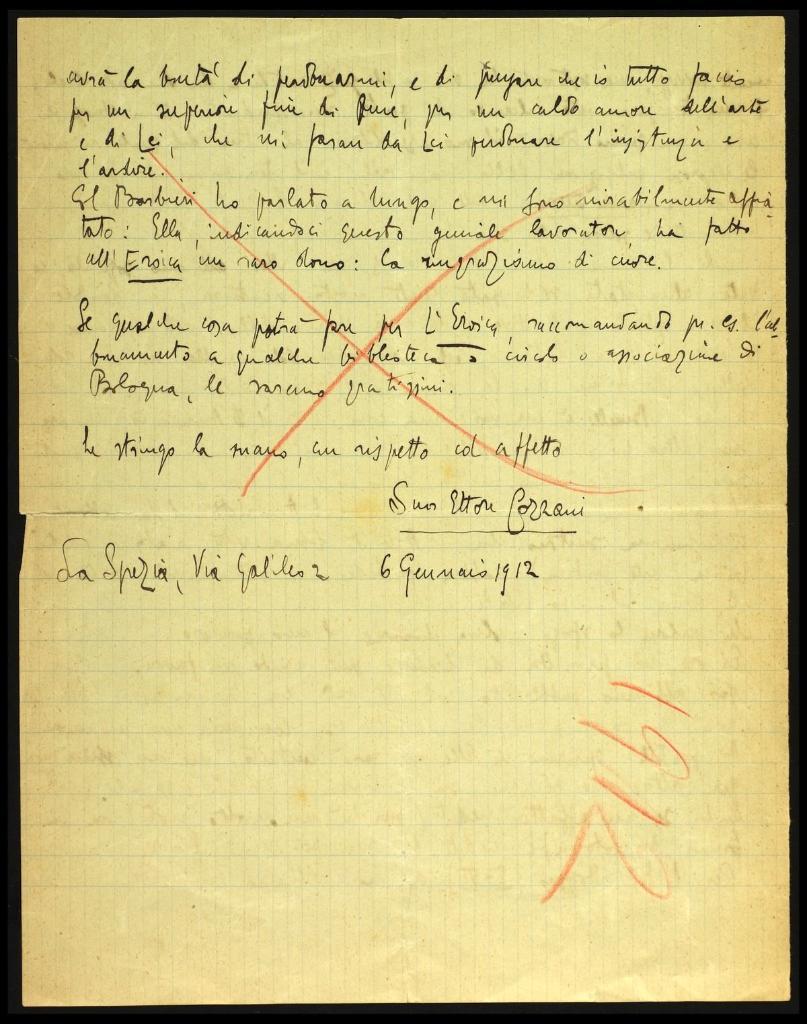 avrà la bontà di perdonarmi, e di pensare che io tutto faccio
per un superiore fine di bene, per un caldo amore dell'arte
e di Lei, che mi faran da Lei perdonare l'insistenza e
l'ardire.
Col Barbieri ho parlato a lungo, e mi sono mirabilmente affia-
tato: Ella, indicandoci questo geniale lavoratore ha fatto
all'Eroica un raro dono: la ringraziamo di cuore.
Se qualche cosa potrà fare per L'Eroica, raccomandando p. es. l'ab-
bonamento a qualche biblioteca o circolo o associazione di
Bologna, le saremo gratissimi.
Le stringo la mano, con rispetto ed affetto
Suo Ettore Cozzani
La Spezia, Via Galileo 2 6 Gennaio 1912
1912